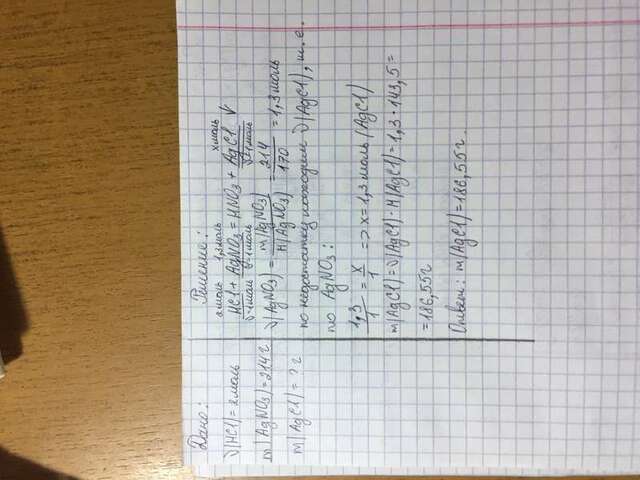 Дано:
ν(HCl)=2моль
m(AgNO3)=214г
m(AgCl)=?г
Решение:
2моль 1,3моль хмоль
HCl+AgNO3=HNO3+AgCl↓
ν-1моль ν-1моль ν-1моль
ν(AgNO3)=m(AgNO3)/M(AgNO3)=214/170=1,3моль
по недостатку находим ν(AgCl), т.е.
по AgNO3:
1,3/1=x/1 => x=1,3моль(AgCl)
m(AgCl)=ν(AgCl)·M(AgCl)=1,3·143,5=
=186,55г
Ответ: m(AgCl)=186,55г.